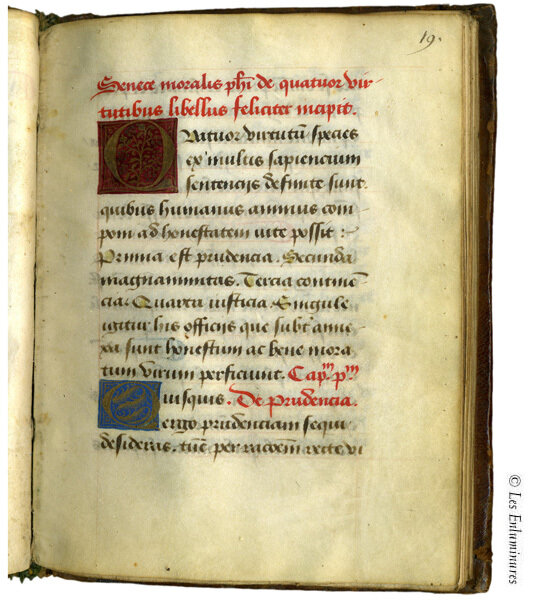 19.
Senece moralis phi de quatuor vir-
tutibus libellus feliciter incipit.
Quatuor virtutū species
ex multis sapiencium
sentenciis definite sunt.
quibus humanus animus com
poni ad honestatem vite possit :
Prima est prudencia. Secunda
magnanimitas. Tercia contineē
cia. Quarta iusticia. Singule
igitur his officiis que subt anne
xa sunt honestum ac bene mora
tum virum perficiunt. Capm pm
Quisquis. De Prudencia.
ergo prudenciam sequi
desideras. tūc per racōem recte vi
© Les Enluminures